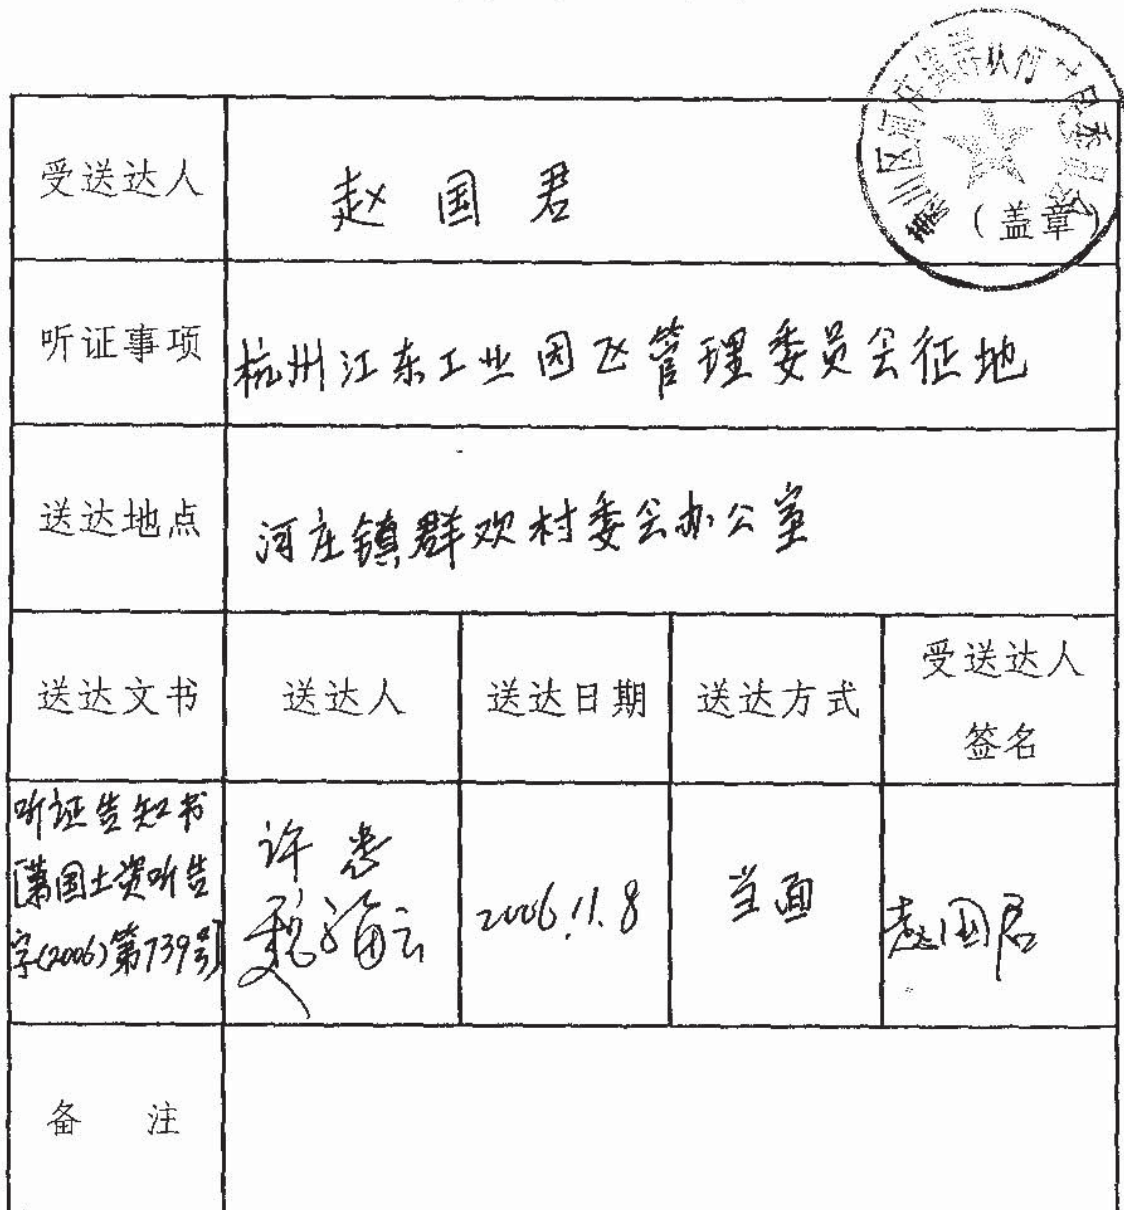 受送达人
赵国君
（盖章）
听证事项
杭州江东工业园区管理委员会征地
送达地点
河庄镇群欢村委会办公室
送达文书
送达人
送达日期
送达方式
受送达人
签名
听证告知书
[萧国土资听告
字(2006)第739号]
许
2006.11.8
当面
赵国君
备 注